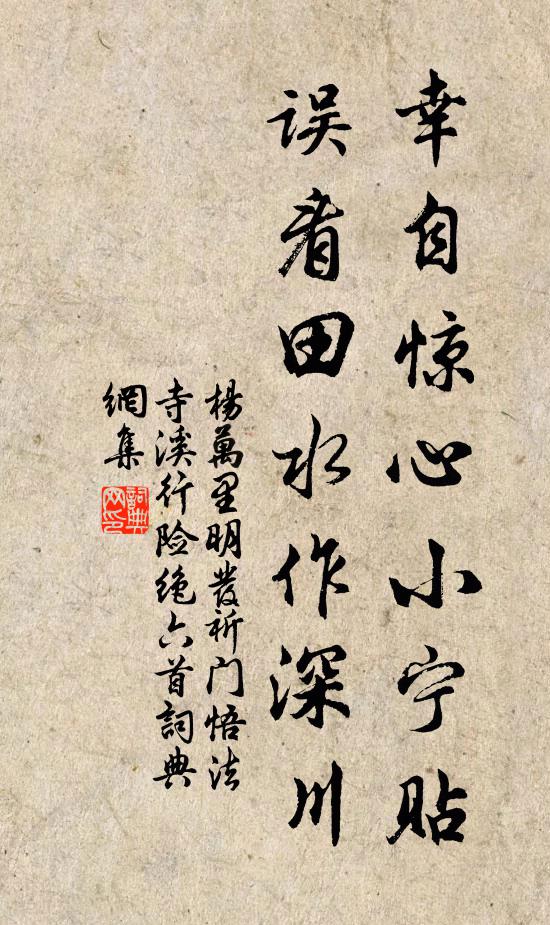 幸自惊心小宁贴
误看田水作深川
楊萬里明發祈门悟法
寺溪行险绝六首詞典
網集
詞典网印